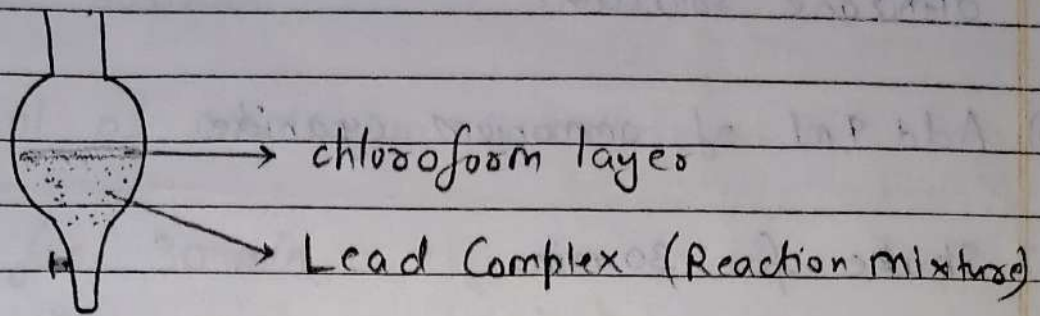 chloroform layer
Lead Complex (Reaction mixture)